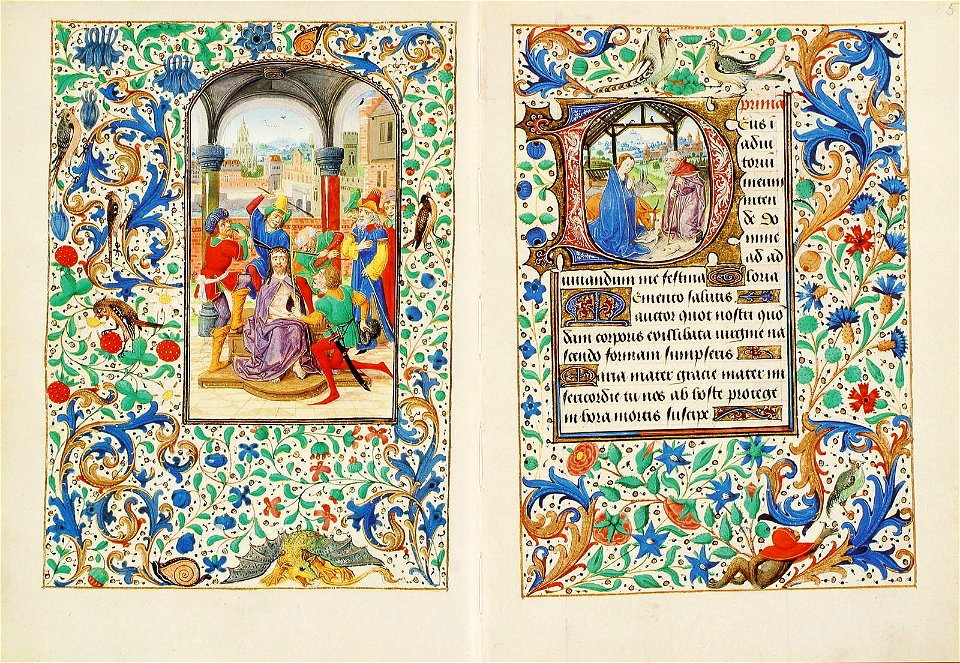 5
Prima
Deus i
adiu
toriu
meum
inten
de Do
mine
ad ad
iuuandum me festina Gloria
Memento salutis
auctor quot nostri quo
dam corporis exillibata uirgine na
scendo formam sumpseris
Maria mater gracie mater mi
sericordie tu nos ab hoste protege
in hora mortis suscipe